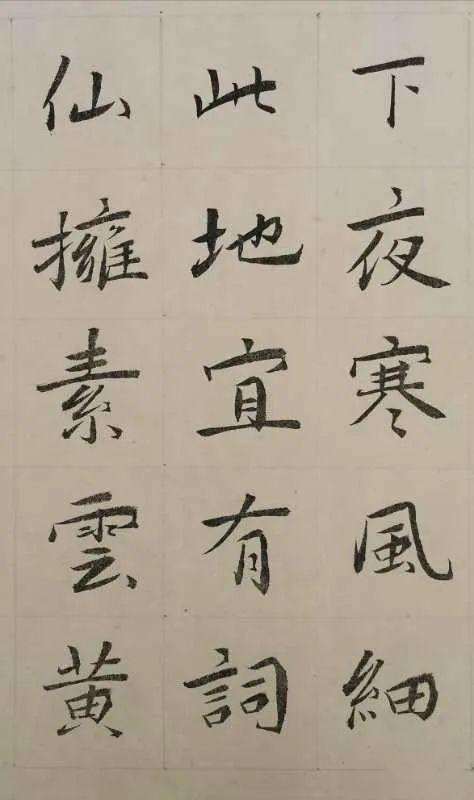 下夜寒風細
此地宜有詞
仙擁素雲黄